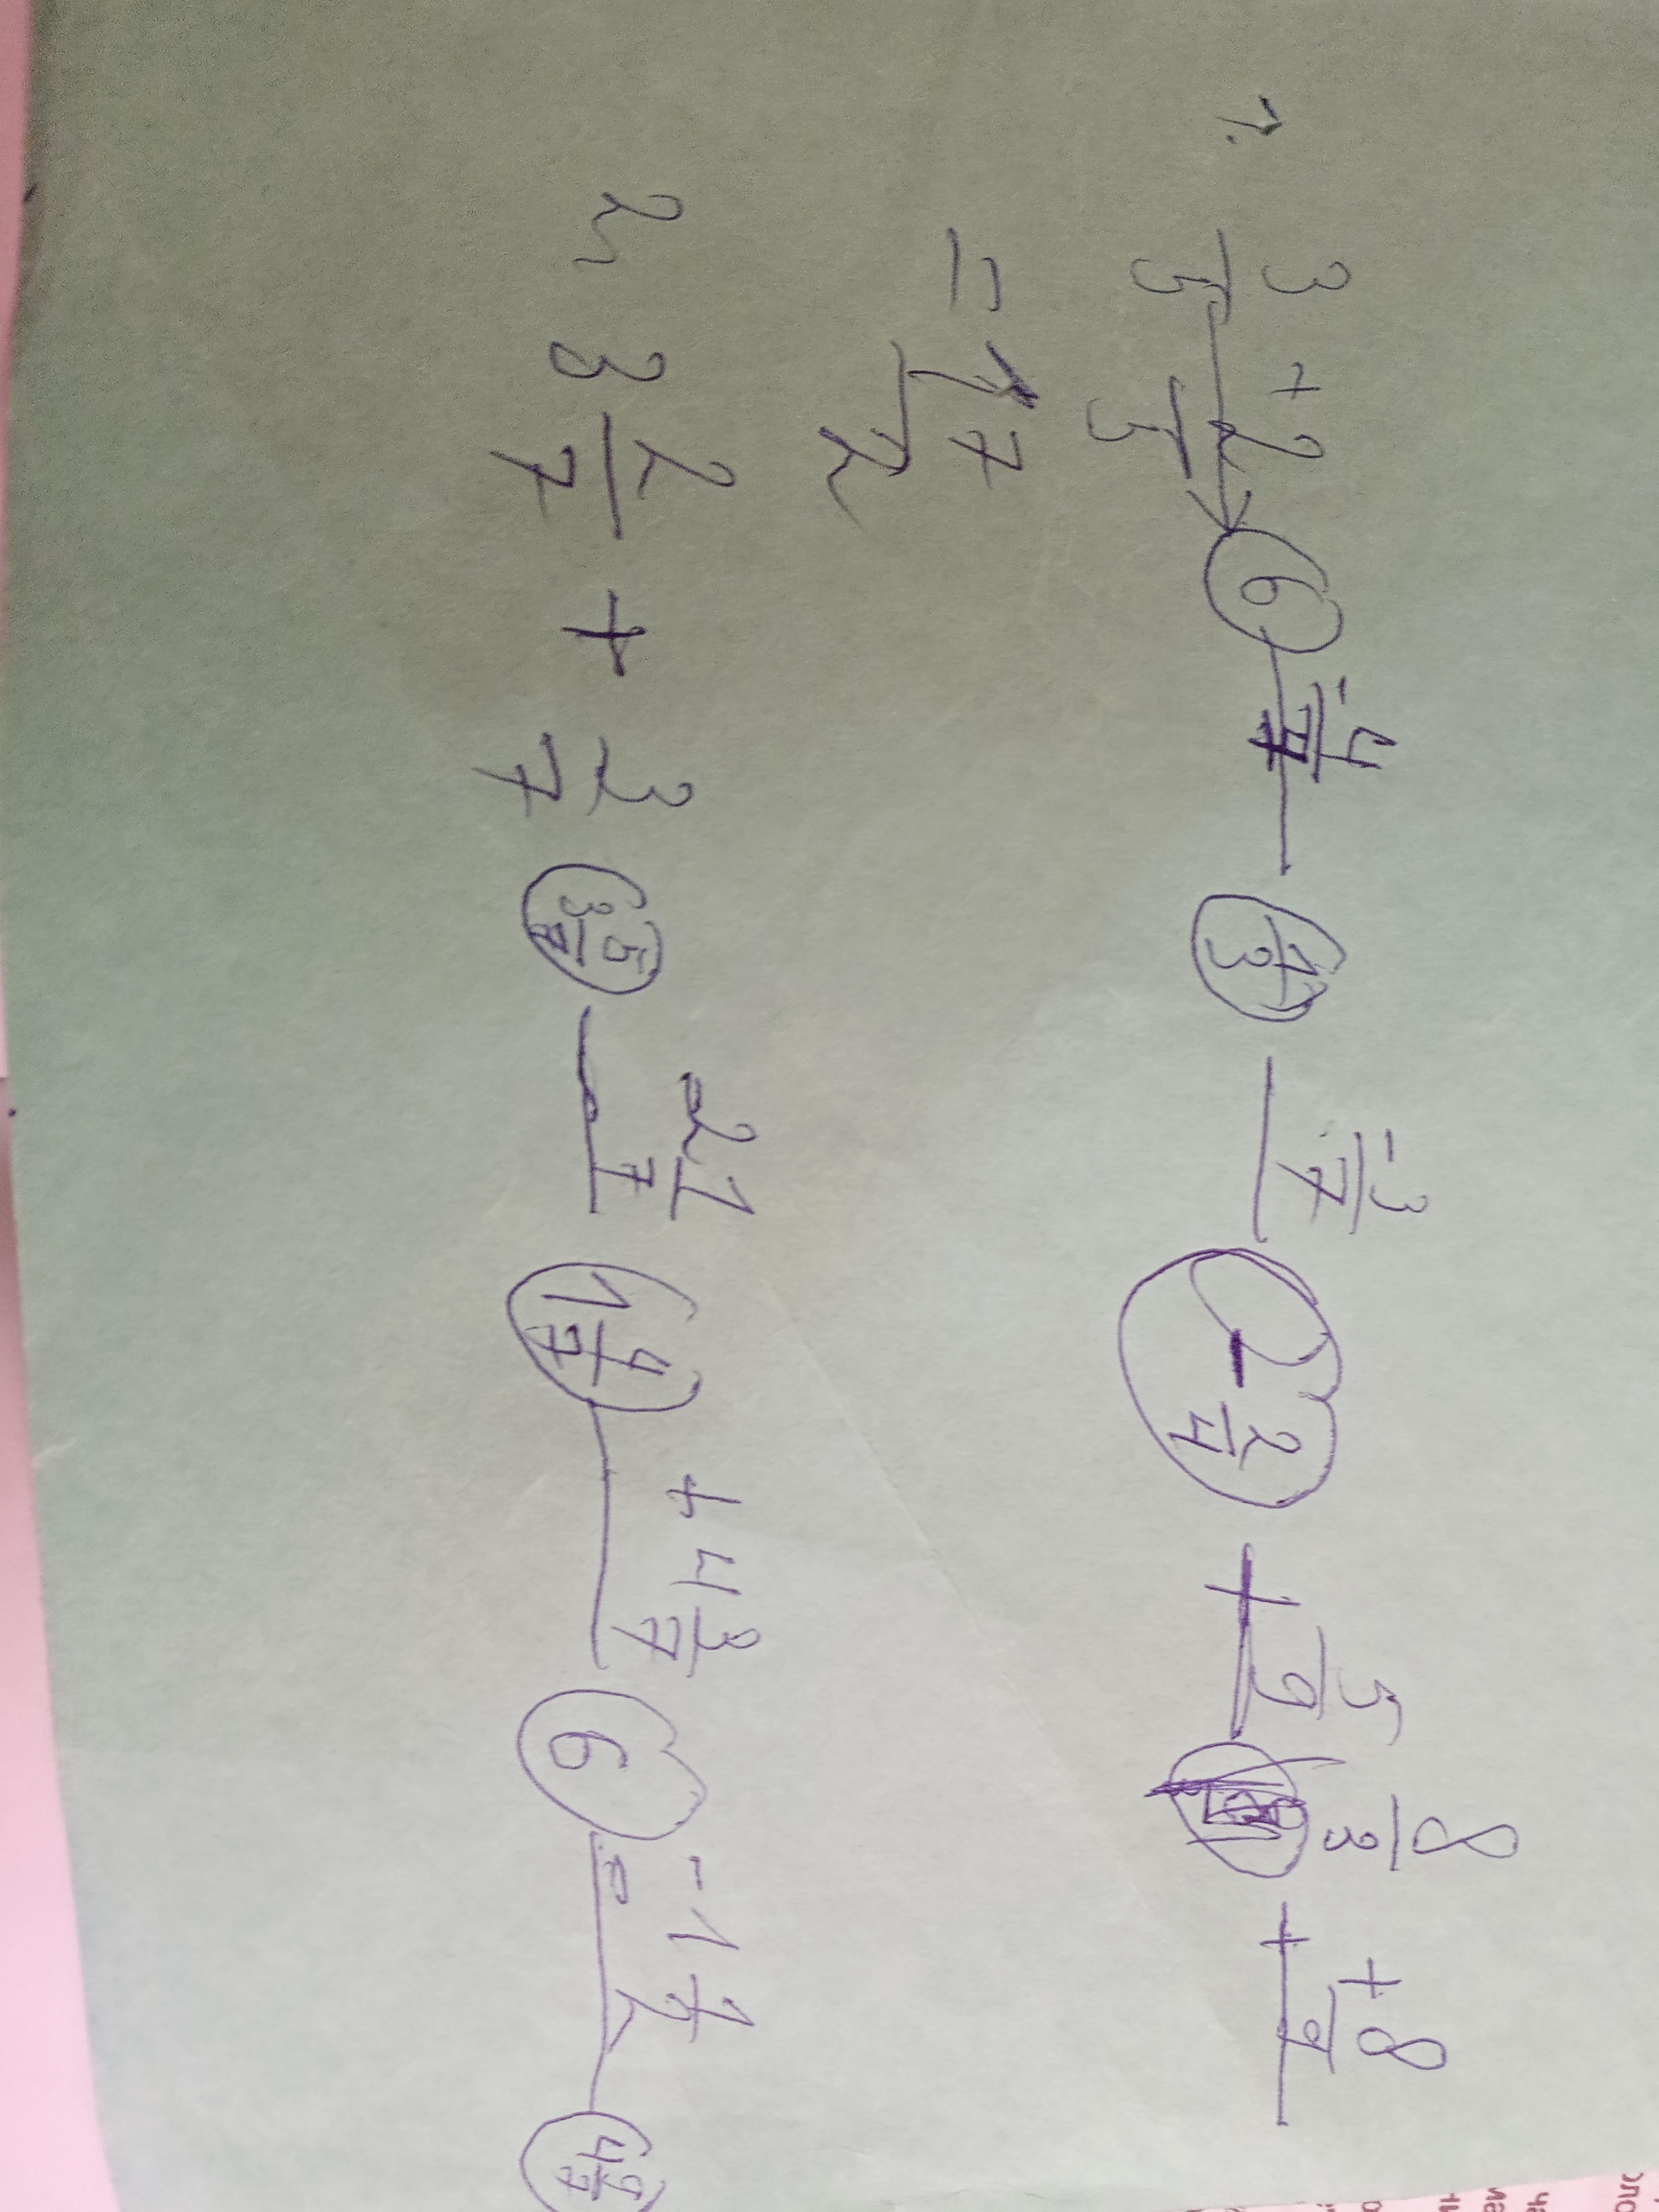 1. 3/5 + 2/5 6 -4/7 1/3 -3/7 - 2/4 + 5/9 8/3 + 8/9
= 17/2
2. 3 2/7 + 3/7 3 5/7 - 2 1/7 1 4/7 + 4 3/7 6 - 1 1/2 4